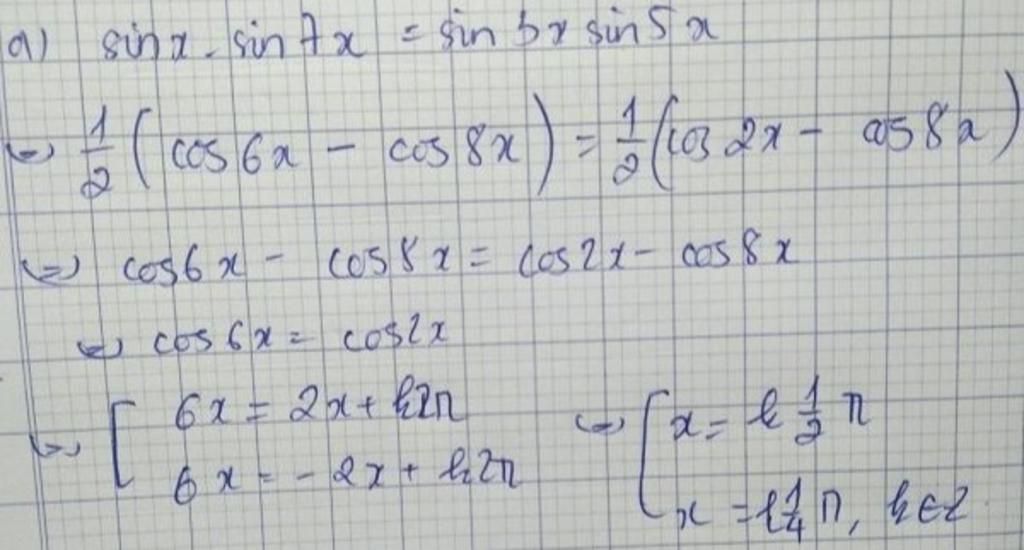 a) sin x . sin 7x = sin 3x sin 5x
⇔ 1/2 ( cos 6x - cos 8x ) = 1/2 ( cos 2x - cos 8x )
⇔ cos 6x - cos 8x = cos 2x - cos 8x
⇔ cos 6x = cos 2x
⇔ [ 6x = 2x + k2π ⇔ [ x = k 1/2 π
6x = -2x + k2π x = k 1/4 π, k ∈ Z